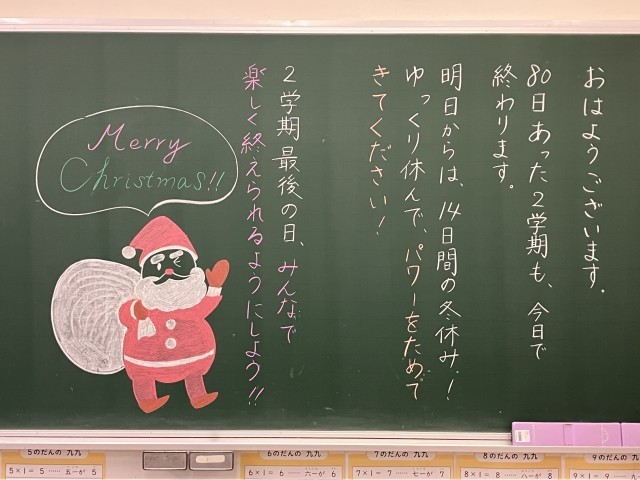 おはようございます。
80日あった2学期も、今日で
終わります。
明日からは、14日間の冬休み!
ゆっくり休んで、パワーをためて
きてください!
2学期最後の日、みんなで
楽しく終えられるようにしよう!!
Merry
Christmas!!
5のだんの 九九
5×1=5 …… 五一が 5
6のだんの 九九
6×1=6 …… 六一が 6
7のだんの 九九
7×1=7 …… 七一が 7
8のだんの 九九
8×1=8 …… 八一が 8
9のだんの 九九
9×1=9 …… 九